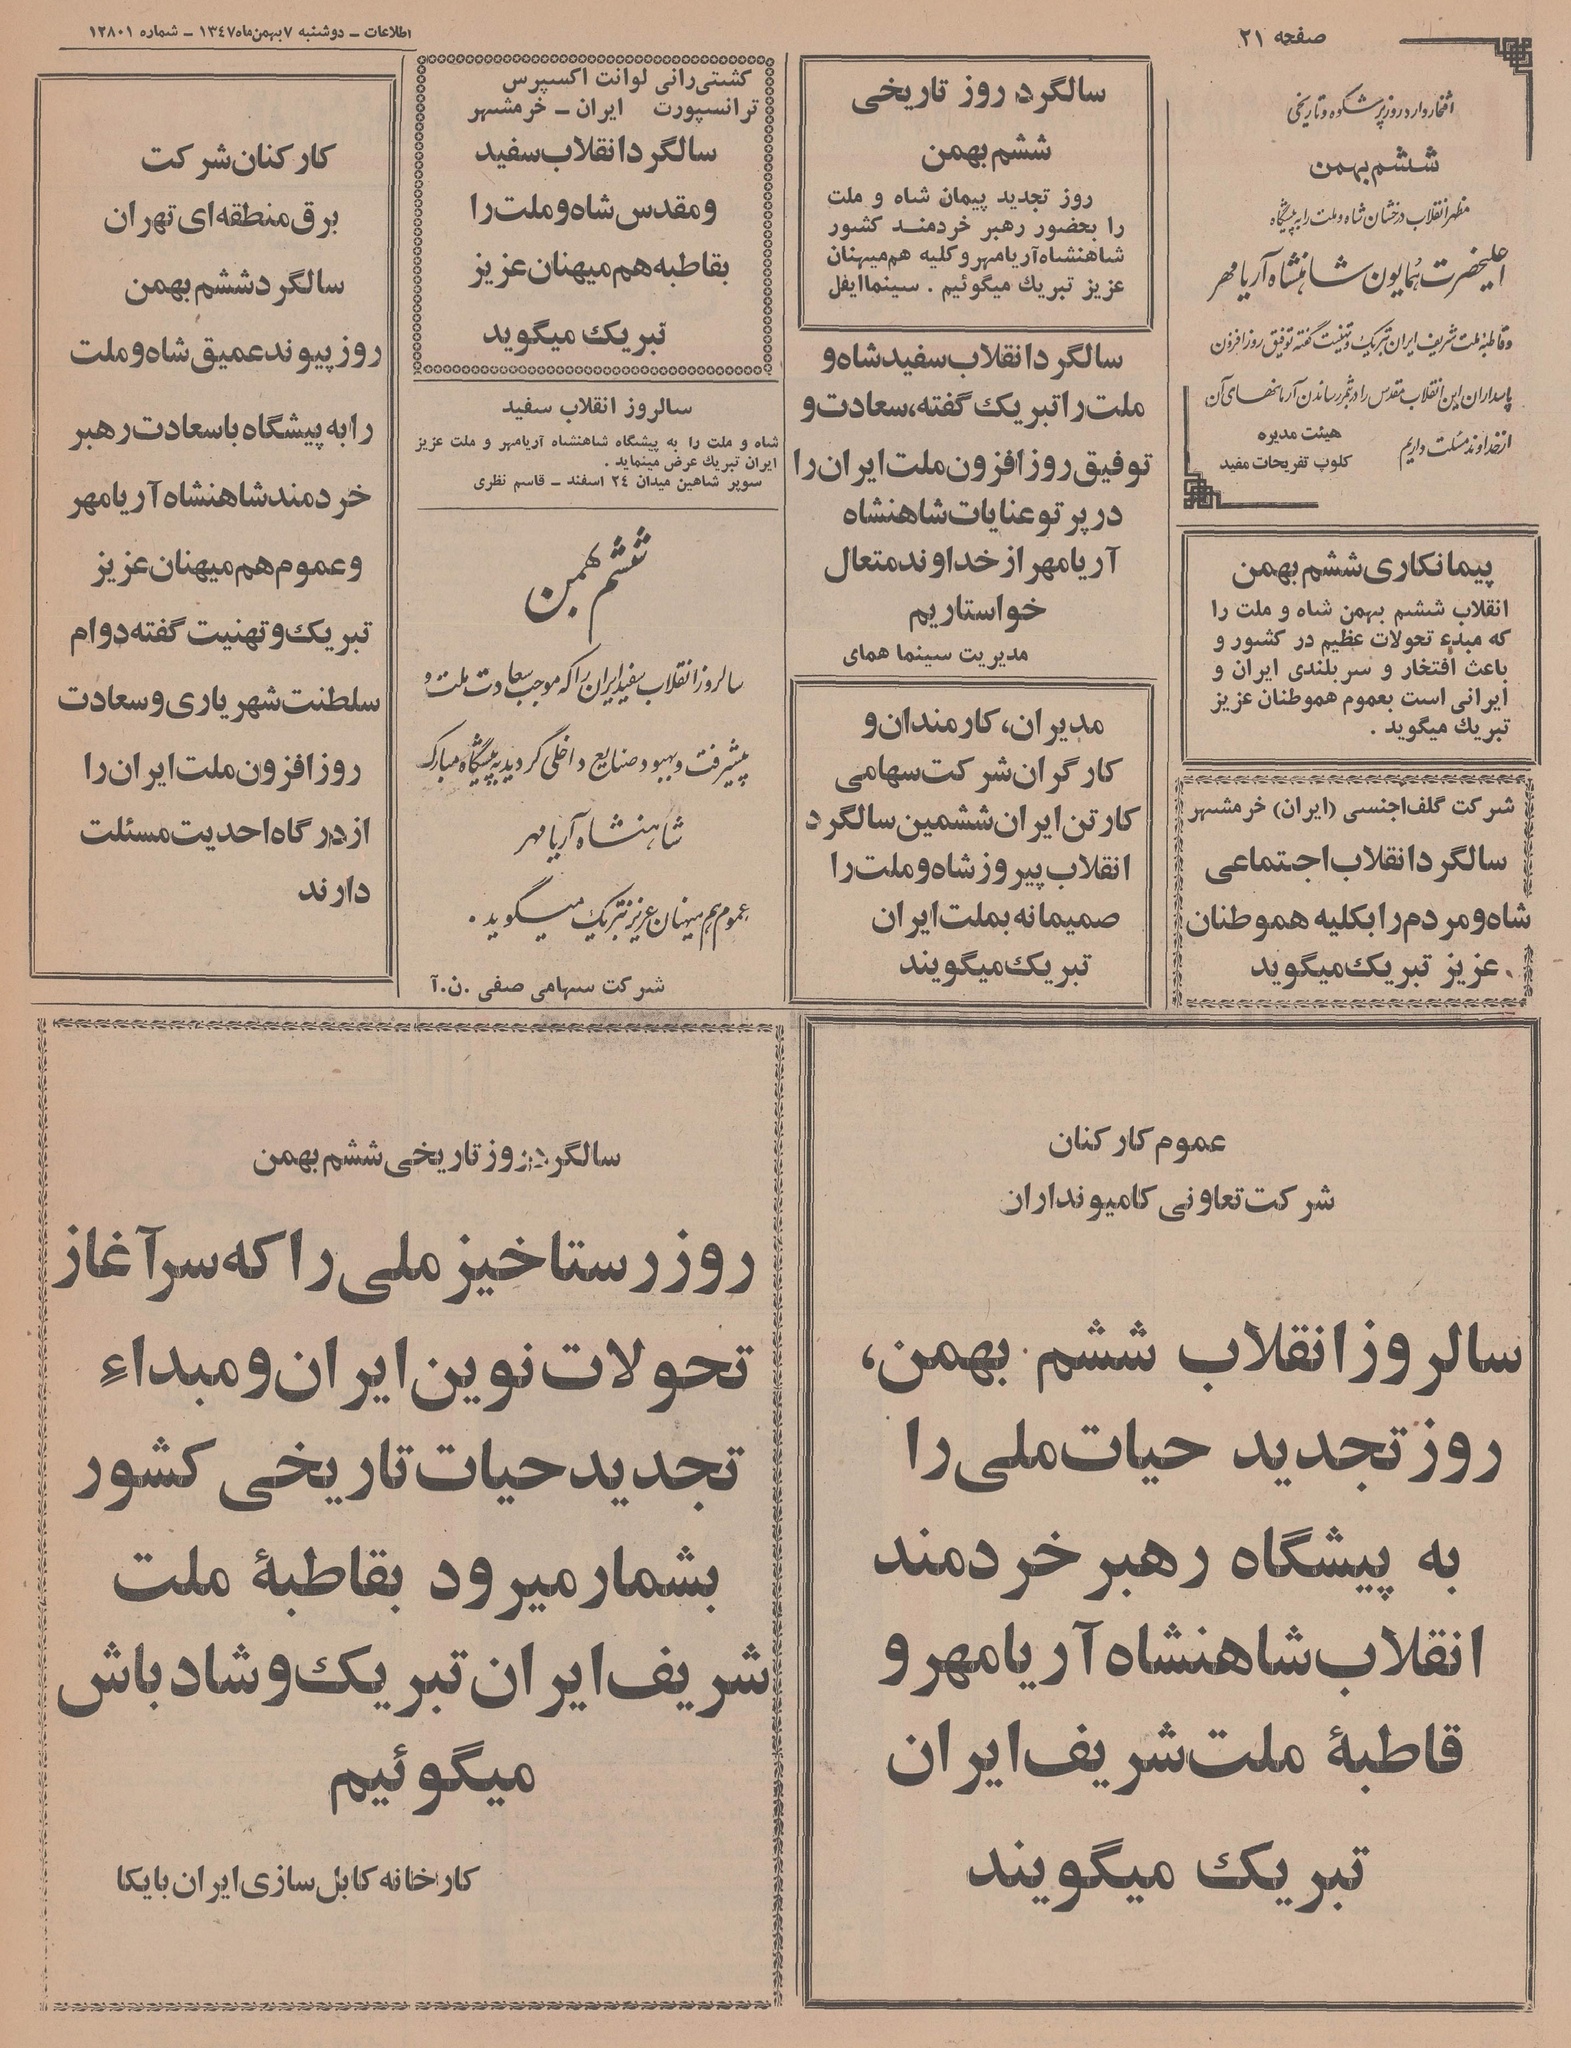 صفحه ۲۱
اطلاعات ـ دوشنبه ۷ بهمن‌ماه ۱۳۴۷ ـ شماره ۱۲۸۰۱
افتخار دارد روز پرشکوه و تاریخی
ششم بهمن
مظهر انقلاب درخشان شاه و ملت را به پیشگاه
اعلیحضرت همایون شاهنشاه آریامهر
و قاطبه ملت شریف ایران تبریک و تهنیت گفته توفیق روزافزون
پاسداران این انقلاب مقدس را در بثمر رساندن آرمانهای آن
از خداوند مسئلت داریم
هیئت مدیره
کلوپ تفریحات مفید
پیمانکاری ششم بهمن
انقلاب ششم بهمن شاه و ملت را
که مبدء تحولات عظیم در کشور و
باعث افتخار و سربلندی ایران و
ایرانی است بعموم هموطنان عزیز
تبریك میگوید .
شرکت گلف‌اجنسی (ایران) خرمشهر
سالگرد انقلاب اجتماعی
شاه و مردم را بکلیه هموطنان
عزیز تبریك میگوید .
سالگرد روز تاریخی
ششم بهمن
روز تجدید پیمان شاه و ملت
را بحضور رهبر خردمند کشور
شاهنشاه آریامهر و کلیه هم‌میهنان
عزیز تبریك میگوئیم . سینما ایفل
سالگرد انقلاب سفید شاه و
ملت را تبریك گفته، سعادت و
توفیق روزافزون ملت ایران را
در پرتو عنایات شاهنشاه
آریامهر از خداوند متعال
خواستاریم
مدیریت سینما همای
مدیران، کارمندان و
کارگران شرکت سهامی
کارتن ایران ششمین سالگرد
انقلاب پیروز شاه و ملت را
صمیمانه بملت ایران
تبریك میگویند
کشتی‌رانی لوانت اکسپرس
ترانسپورت ایران ـ خرمشهر
سالگرد انقلاب سفید
و مقدس شاه و ملت را
بقاطبه هم میهنان عزیز
تبریك میگوید
سالروز انقلاب سفید
شاه و ملت را به پیشگاه شاهنشاه آریامهر و ملت عزیز
ایران تبریك عرض مینماید .
سوپر شاهین میدان ۲۴ اسفند ـ قاسم نظری
ششم بهمن
سالروز انقلاب سفید ایران را که موجب سعادت ملت و
پیشرفت و بهبود صنایع داخلی گردید به پیشگاه مبارک
شاهنشاه آریامهر
عموم هم میهنان عزیز تبریک میگوید .
شرکت سهامی صفی .ن.آ
کارکنان شرکت
برق منطقه‌ای تهران
سالگرد ششم بهمن
روز پیوند عمیق شاه و ملت
را به پیشگاه با سعادت رهبر
خردمند شاهنشاه آریامهر
و عموم هم میهنان عزیز
تبریك و تهنیت گفته دوام
سلطنت شهریاری و سعادت
روزافزون ملت ایران را
از درگاه احدیت مسئلت
دارند
عموم کارکنان
شرکت تعاونی کامیونداران
سالروز انقلاب ششم بهمن،
روز تجدید حیات ملی را
به پیشگاه رهبر خردمند
انقلاب شاهنشاه آریامهر و
قاطبهٔ ملت شریف ایران
تبریك میگویند
سالگرد روز تاریخی ششم بهمن
روز رستاخیز ملی را که سرآغاز
تحولات نوین ایران و مبداء
تجدید حیات تاریخی کشور
بشمار میرود بقاطبهٔ ملت
شریف ایران تبریك و شادباش
میگوئیم
کارخانه کابل‌سازی ایران بایکا